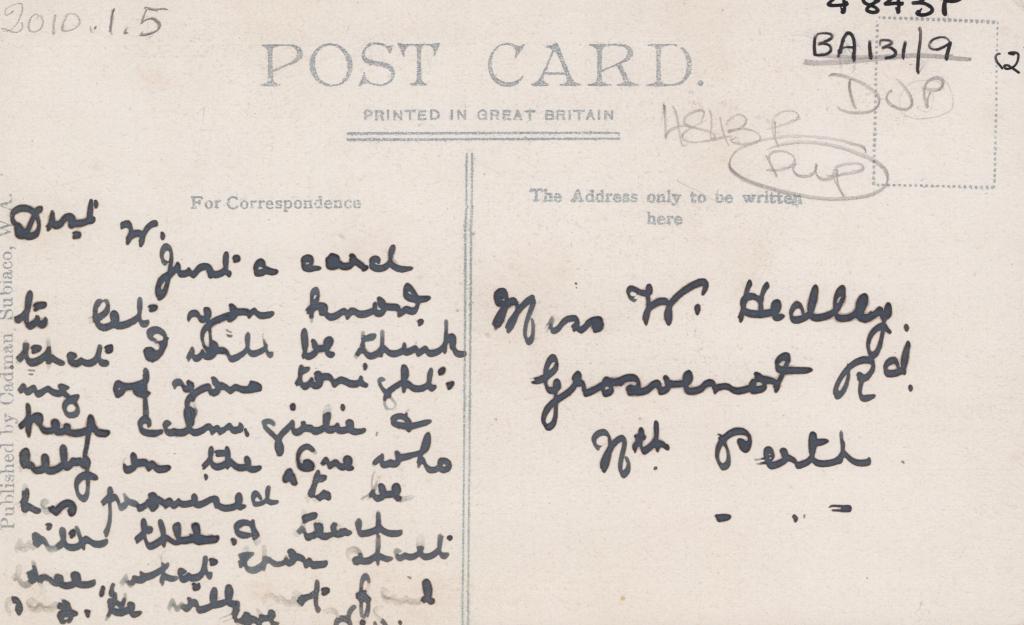 2010.1.5
4843P
BA131/9
2
DUP
4843P
Dup
POST CARD.
PRINTED IN GREAT BRITAIN
For Correspondence
The Address only to be written
here
Published by Cadman, Subiaco, W.A.
Dear W.
Just a card
to let you know
that I will be think
ing of you tonight.
Keep calm, girlie &
rely on the One who
has promised "to be
with thee & teach
thee, what thou shalt
say." He will not fail
love
Miss W. Hedley.
Grosvenor Rd.
Nth Perth